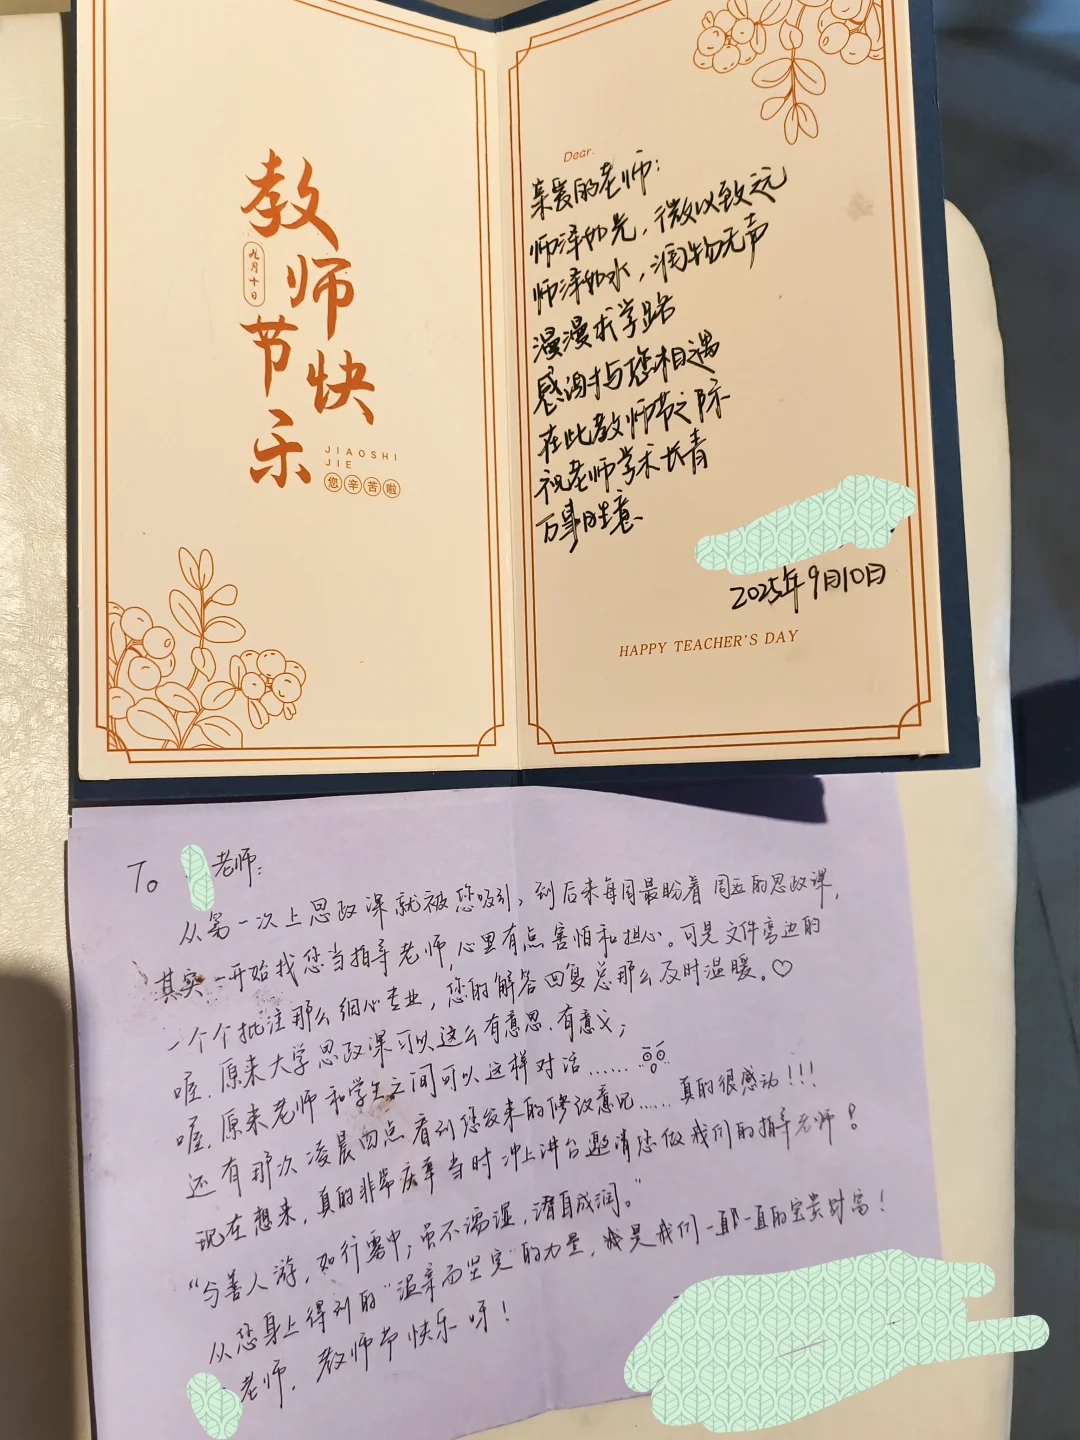 教师节快乐
九月十日
JIAOSHI
JIE
您辛苦啦
Dear.
亲爱的老师:
师泽如光，微以致远
师泽如水，润物无声
漫漫求学路
感谢与您相遇
在此教师节之际
祝老师学术长青
万事胜意
2025年9月10日
HAPPY TEACHER'S DAY
To 老师:
从第一次上思政课就被您吸引，到后来每周最盼着周五的思政课，
其实一开始找您当指导老师，心里有点害怕和担心。可是文件旁边的
一个个批注那么细心专业，您的解答回复总那么及时温暖。♡
喔，原来大学思政课可以这么有意思、有意义；
喔，原来老师和学生之间可以这样对话……
还有那次凌晨四点看到您发来的修改意见……真的很感动!!!
现在想来，真的非常庆幸当时冲上讲台邀请您做我们的指导老师!
“与善人游，如行雾中；虽不濡湿，潜自成润。”
从您身上得到的“温柔而坚定”的力量，我是我们一直一直的宝贵财富!
老师，教师节快乐呀!